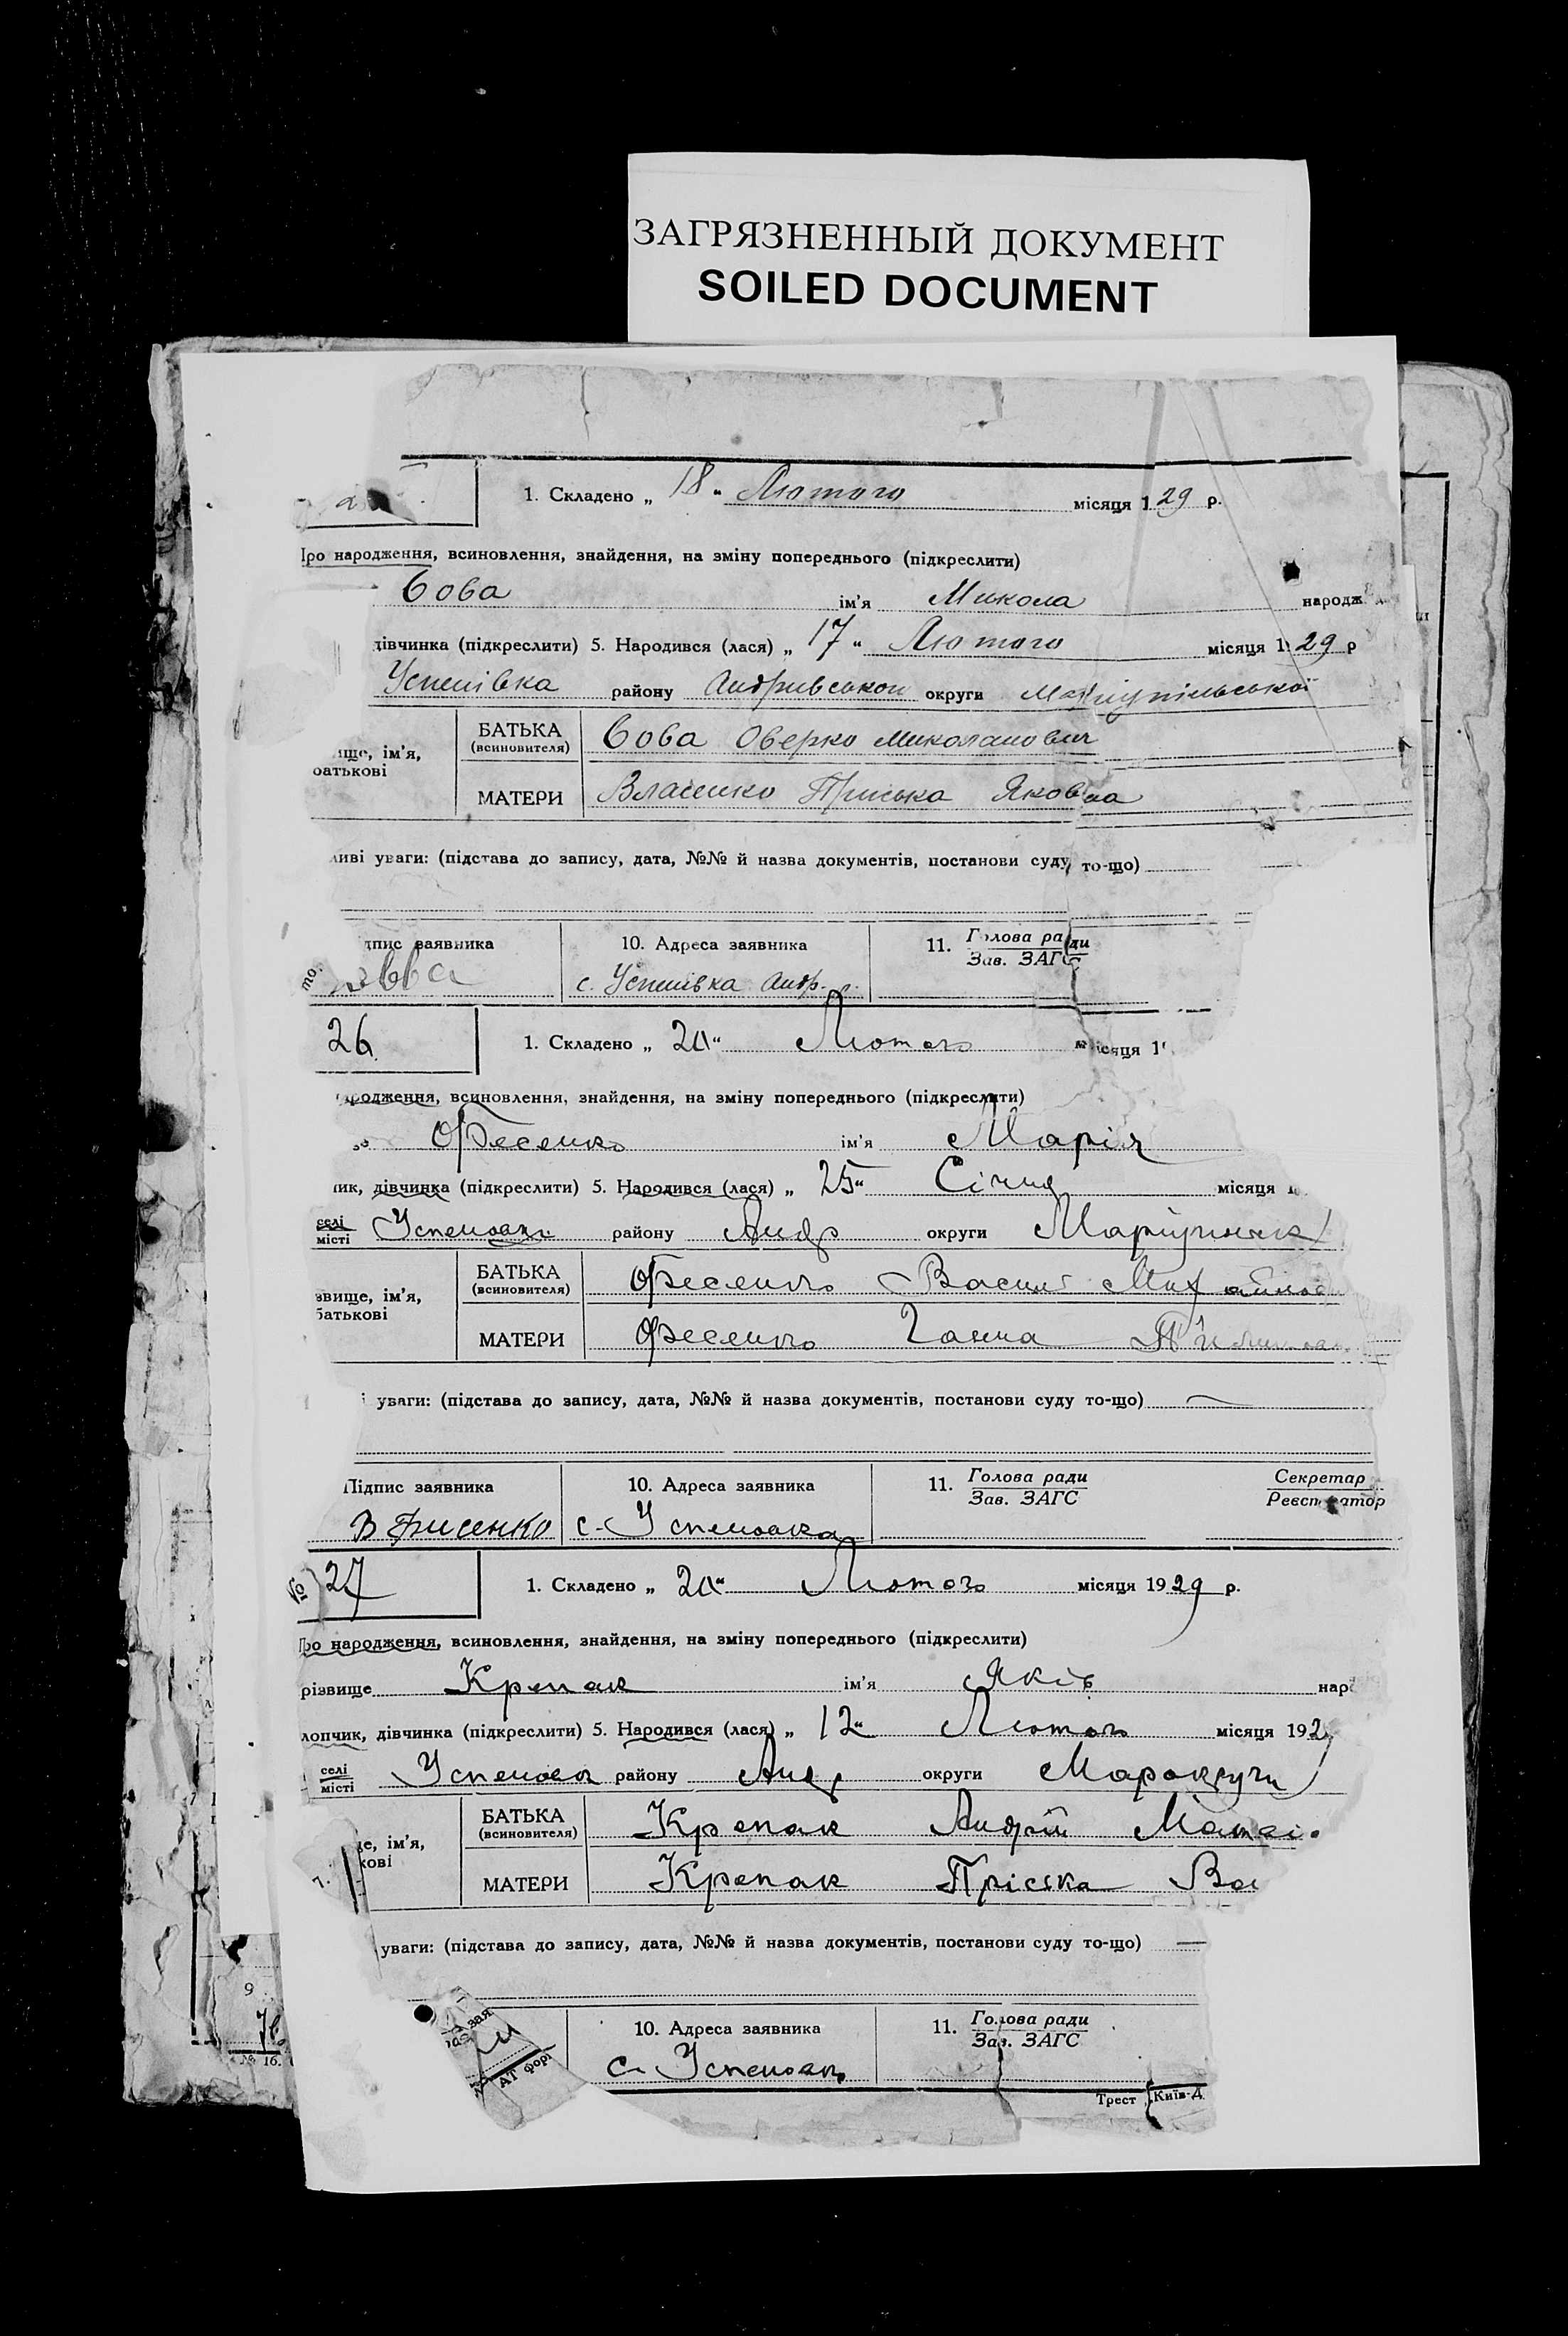 ЗАГРЯЗНЕННЫЙ ДОКУМЕНТ
SOILED DOCUMENT
1. Складено „ 18 “ Лютого місяця 1 29 р.
Про народження, всиновлення, знайдення, на зміну попереднього (підкреслити)
Сова ім’я Микола народж
дівчинка (підкреслити) 5. Народився (лася) „ 17 “ Лютого місяця 1 29 р
Успенівка району Андривськои округи Маріупільської
ище, ім’я, батькові
БАТЬКА (всиновителя) Сова Оверко Миколаевич
МАТЕРИ Приська Яковна
ливі уваги: (підстава до запису, дата, №№ й назва документів, постанови суду то-що)
дпис заявника 10. Адреса заявника 11. Голова ради
Зав. ЗАГС
с. Успенівка Андр. р.
26 1. Складено „ 20 “ Лютого місяця 1
родження, всиновлення, знайдення, на зміну попереднього (підкреслити)
Фесенко ім’я Марія
ик, дівчинка (підкреслити) 5. Народився (лася) „ 25 “ Січня місяця 1
селі
місті Успеновка району Андр округи
звище, ім’я, батькові
БАТЬКА (всиновителя) Фесенко Васил
МАТЕРИ Фесенко Ганна
і уваги: (підстава до запису, дата, №№ й назва документів, постанови суду то-що)
Підпис заявника 10. Адреса заявника 11. Голова ради Секретар
Зав. ЗАГС Реєстратор
с. Успеновка
№ 27 1. Складено „ 20 “ Лютого місяця 19 29 р.
Про народження, всиновлення, знайдення, на зміну попереднього (підкреслити)
різвище Крепак ім’я Яків наро
лопчик, дівчинка (підкреслити) 5. Народився (лася) „ 12 “ Лютого місяця 192
селі
місті Успеновк району Андр округи
ще, ім’я, кові
БАТЬКА (всиновителя) Крепак Андрій
МАТЕРИ Крепак Пріська Ва
7.
уваги: (підстава до запису, дата, №№ й назва документів, постанови суду то-що)
10. Адреса заявника 11. Голова ради
Зав. ЗАГС
с. Успеновк
Трест „Київ-Д